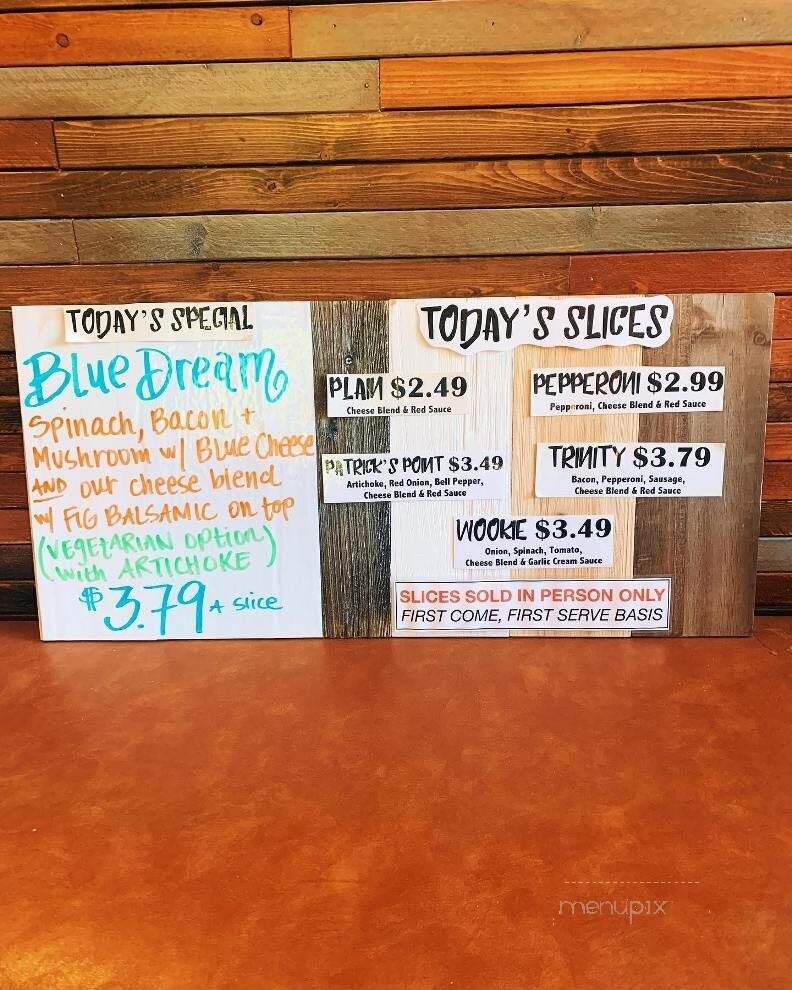 TODAY'S SPECIAL
Blue Dream
Spinach, Bacon +
Mushroom w/ Blue Cheese
AND our cheese blend
w/ FIG BALSAMIC on top
(VEGETARIAN OPtiON)
(with ARTICHOKE)
$3.79 A slice
TODAY'S SLICES
PLAIN $2.49
Cheese Blend & Red Sauce
PEPPERONI $2.99
Pepperoni, Cheese Blend & Red Sauce
PATRICK'S POINT $3.49
Artichoke, Red Onion, Bell Pepper,
Cheese Blend & Red Sauce
TRINITY $3.79
Bacon, Pepperoni, Sausage,
Cheese Blend & Red Sauce
WOOKIE $3.49
Onion, Spinach, Tomato,
Cheese Blend & Garlic Cream Sauce
SLICES SOLD IN PERSON ONLY
FIRST COME, FIRST SERVE BASIS
menupix